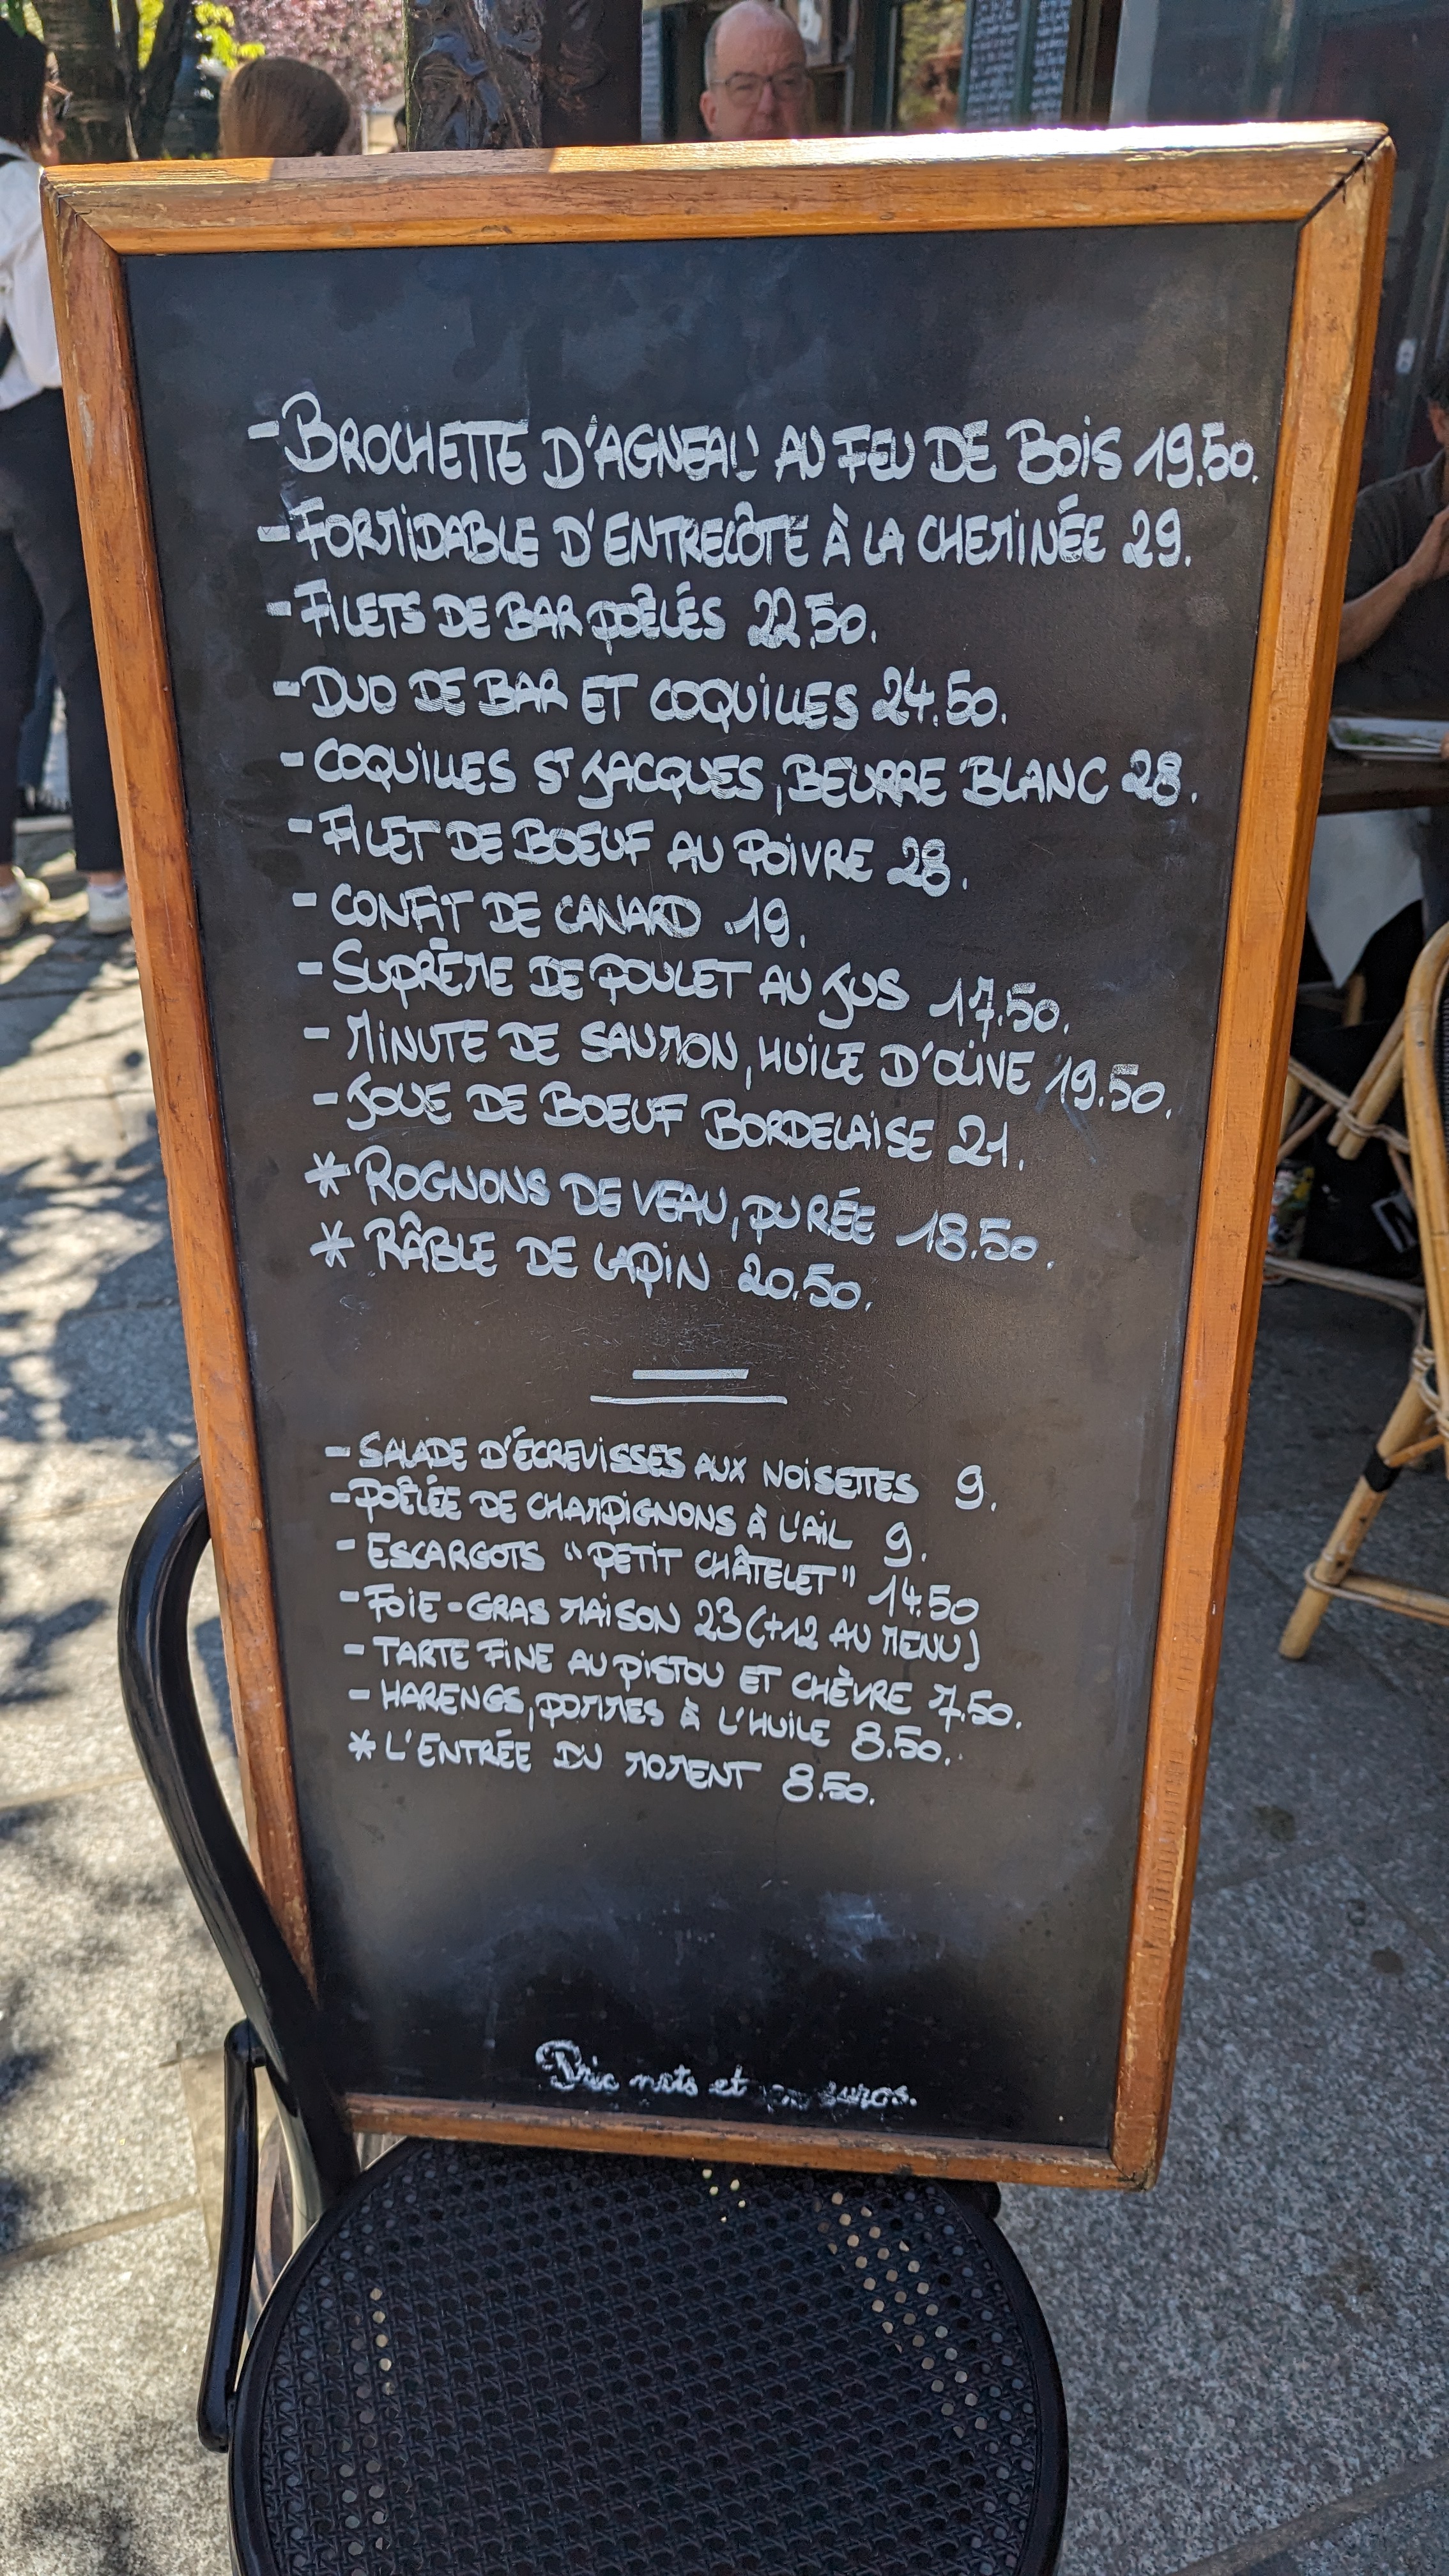 - BROCHETTE D'AGNEAU AU FEU DE BOIS 19,50.
- FORMIDABLE D'ENTRECÔTE À LA CHEMINÉE 29.
- FILETS DE BAR POÊLÉS 22,50.
- DUO DE BAR ET COQUILLES 24.50.
- COQUILLES ST JACQUES, BEURRE BLANC 28.
- FILET DE BOEUF AU POIVRE 28.
- CONFIT DE CANARD 19.
- SUPRÊME DE POULET AU JUS 17.50.
- MINUTE DE SAUMON, HUILE D'OLIVE 19.50.
- JOUE DE BOEUF BORDELAISE 21.
* ROGNONS DE VEAU, PURÉE 18.50.
* RÂBLE DE LAPIN 20.50.
- SALADE D'ÉCREVISSES AUX NOISETTES 9.
- POÊLÉE DE CHAMPIGNONS À L'AIL 9.
- ESCARGOTS "PETIT CHÂTELET" 14.50
- FOIE-GRAS MAISON 23 (+12 AU MENU)
- TARTE FINE AU PISTOU ET CHÈVRE 7.50.
- HARENGS, POMMES À L'HUILE 8.50.
* L'ENTRÉE DU MOMENT 8.50.
Prix nets et euros.